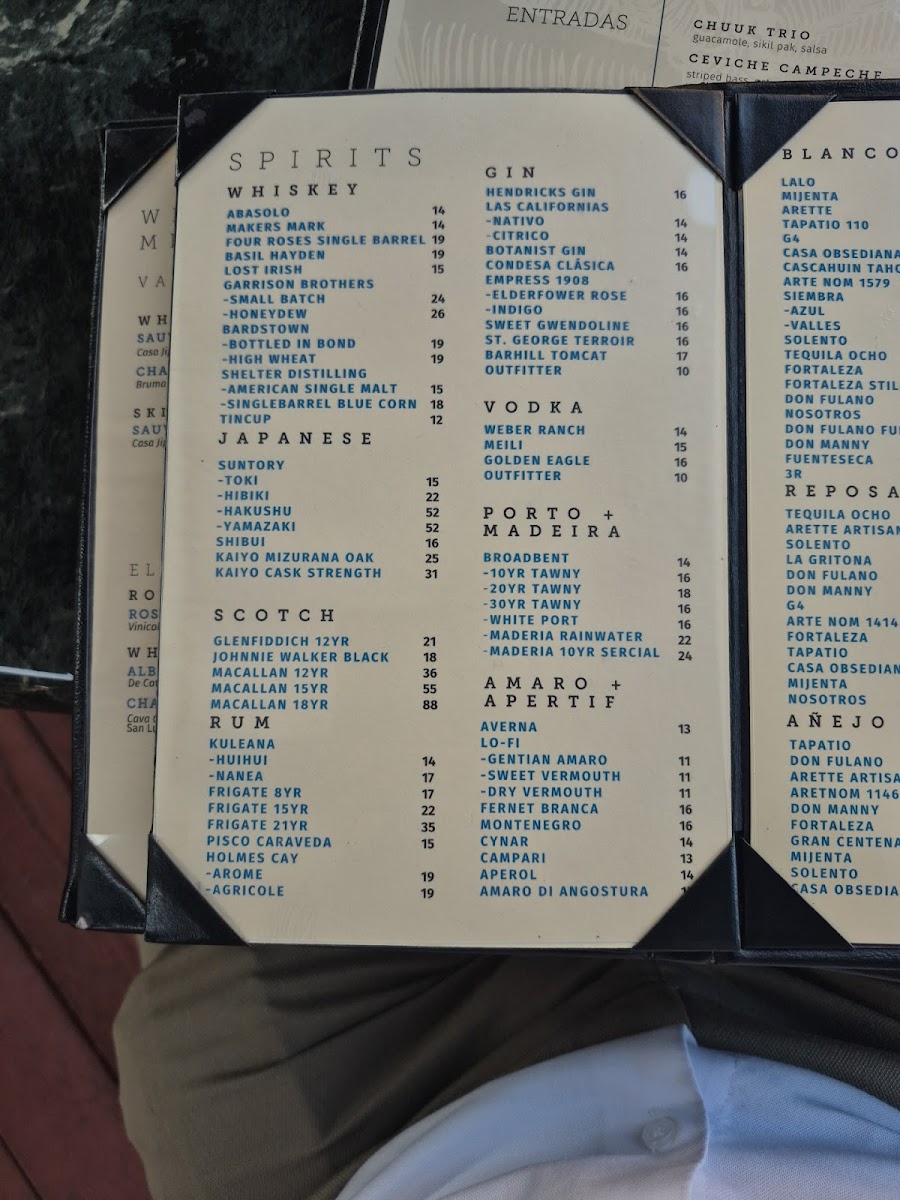 ENTRADAS
CHUUK TRIO
guacamole, sikil pak, salsa
CEVICHE CAMPECHE
striped bass
SPIRITS
WHISKEY
ABASOLO 14
MAKERS MARK 14
FOUR ROSES SINGLE BARREL 19
BASIL HAYDEN 19
LOST IRISH 15
GARRISON BROTHERS
-SMALL BATCH 24
-HONEYDEW 26
BARDSTOWN
-BOTTLED IN BOND 19
-HIGH WHEAT 19
SHELTER DISTILLING
-AMERICAN SINGLE MALT 15
-SINGLEBARREL BLUE CORN 18
TINCUP 12
JAPANESE
SUNTORY
-TOKI 15
-HIBIKI 22
-HAKUSHU 52
-YAMAZAKI 52
SHIBUI 16
KAIYO MIZURANA OAK 25
KAIYO CASK STRENGTH 31
SCOTCH
GLENFIDDICH 12YR 21
JOHNNIE WALKER BLACK 18
MACALLAN 12YR 36
MACALLAN 15YR 55
MACALLAN 18YR 88
RUM
KULEANA
-HUIHUI 14
-NANEA 17
FRIGATE 8YR 17
FRIGATE 15YR 22
FRIGATE 21YR 35
PISCO CARAVEDA 15
HOLMES CAY
-AROME 19
-AGRICOLE 19
GIN
HENDRICKS GIN 16
LAS CALIFORNIAS
-NATIVO 14
-CITRICO 14
BOTANIST GIN 14
CONDESA CLÁSICA 16
EMPRESS 1908
-ELDERFOWER ROSE 16
-INDIGO 16
SWEET GWENDOLINE 16
ST. GEORGE TERROIR 16
BARHILL TOMCAT 17
OUTFITTER 10
VODKA
WEBER RANCH 14
MEILI 15
GOLDEN EAGLE 16
OUTFITTER 10
PORTO +
MADEIRA
BROADBENT 14
-10YR TAWNY 16
-20YR TAWNY 18
-30YR TAWNY 16
-WHITE PORT 16
-MADERIA RAINWATER 22
-MADERIA 10YR SERCIAL 24
AMARO +
APERTIF
AVERNA 13
LO-FI
-GENTIAN AMARO 11
-SWEET VERMOUTH 11
-DRY VERMOUTH 11
FERNET BRANCA 16
MONTENEGRO 16
CYNAR 14
CAMPARI 13
APEROL 14
AMARO DI ANGOSTURA
BLANCO
LALO
MIJENTA
ARETTE
TAPATIO 110
G4
CASA OBSEDIANA
CASCAHUIN TAHO
ARTE NOM 1579
SIEMBRA
-AZUL
-VALLES
SOLENTO
TEQUILA OCHO
FORTALEZA
FORTALEZA STIL
DON FULANO
NOSOTROS
DON FULANO FU
DON MANNY
FUENTESECA
3R
REPOSA
TEQUILA OCHO
ARETTE ARTISAN
SOLENTO
LA GRITONA
DON FULANO
DON MANNY
G4
ARTE NOM 1414
FORTALEZA
TAPATIO
CASA OBSEDIAN
MIJENTA
NOSOTROS
AÑEJO
TAPATIO
DON FULANO
ARETTE ARTISA
ARETNOM 1146
DON MANNY
FORTALEZA
GRAN CENTENA
MIJENTA
SOLENTO
CASA OBSEDIA